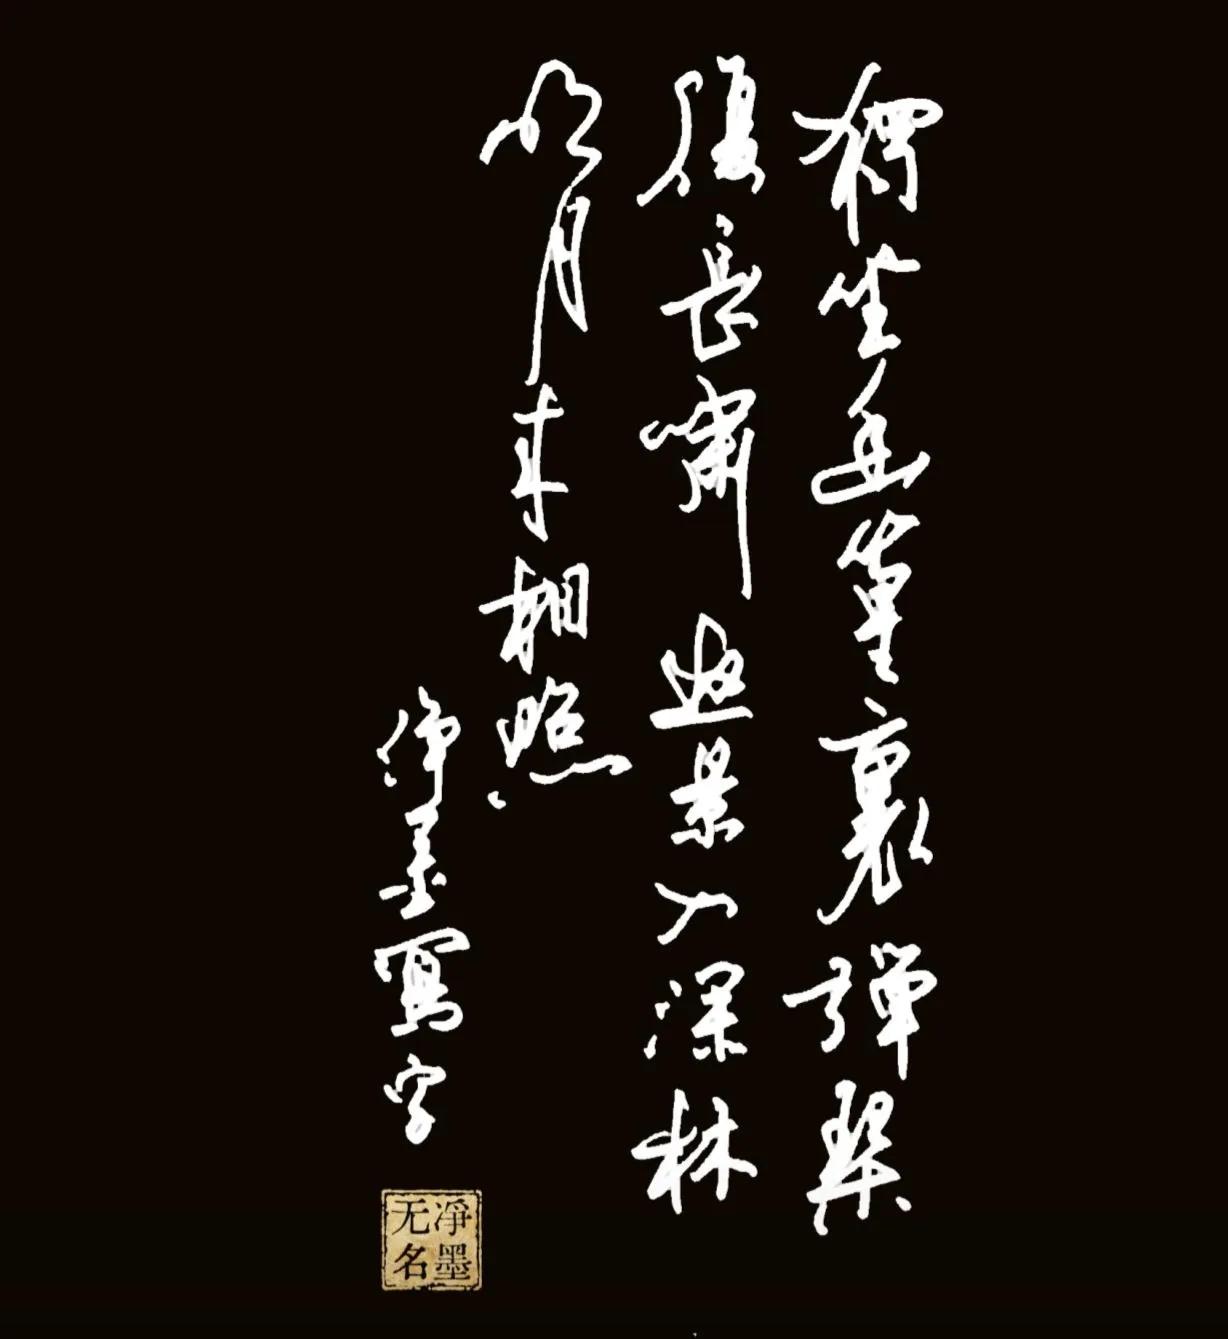 獨坐幽篁裏彈琹
復長嘯返景入深林
明月来相照
净墨寫字
凈墨
无名